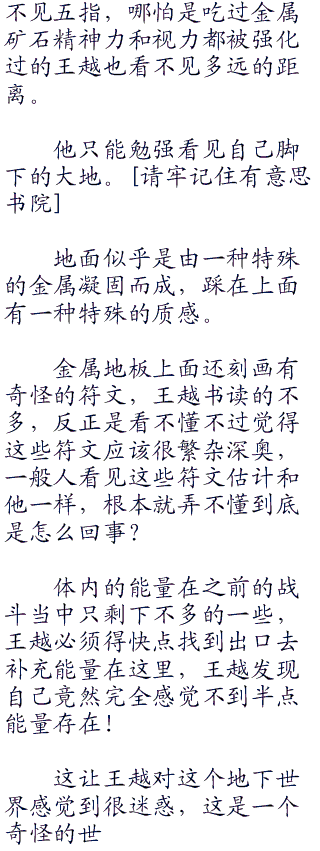 不见五指，哪怕是吃过金属
矿石精神力和视力都被强化
过的王越也看不见多远的距
离。
他只能勉强看见自己脚
下的大地。[请牢记住有意思
书院]
地面似乎是由一种特殊
的金属凝固而成，踩在上面
有一种特殊的质感。
金属地板上面还刻画有
奇怪的符文，王越书读的不
多，反正是看不懂不过觉得
这些符文应该很繁杂深奥，
一般人看见这些符文估计和
他一样，根本就弄不懂到底
是怎么回事？
体内的能量在之前的战
斗当中只剩下不多的一些，
王越必须得快点找到出口去
补充能量在这里，王越发现
自己竟然完全感觉不到半点
能量存在！
这让王越对这个地下世
界感觉到很迷惑，这是一个
奇怪的世